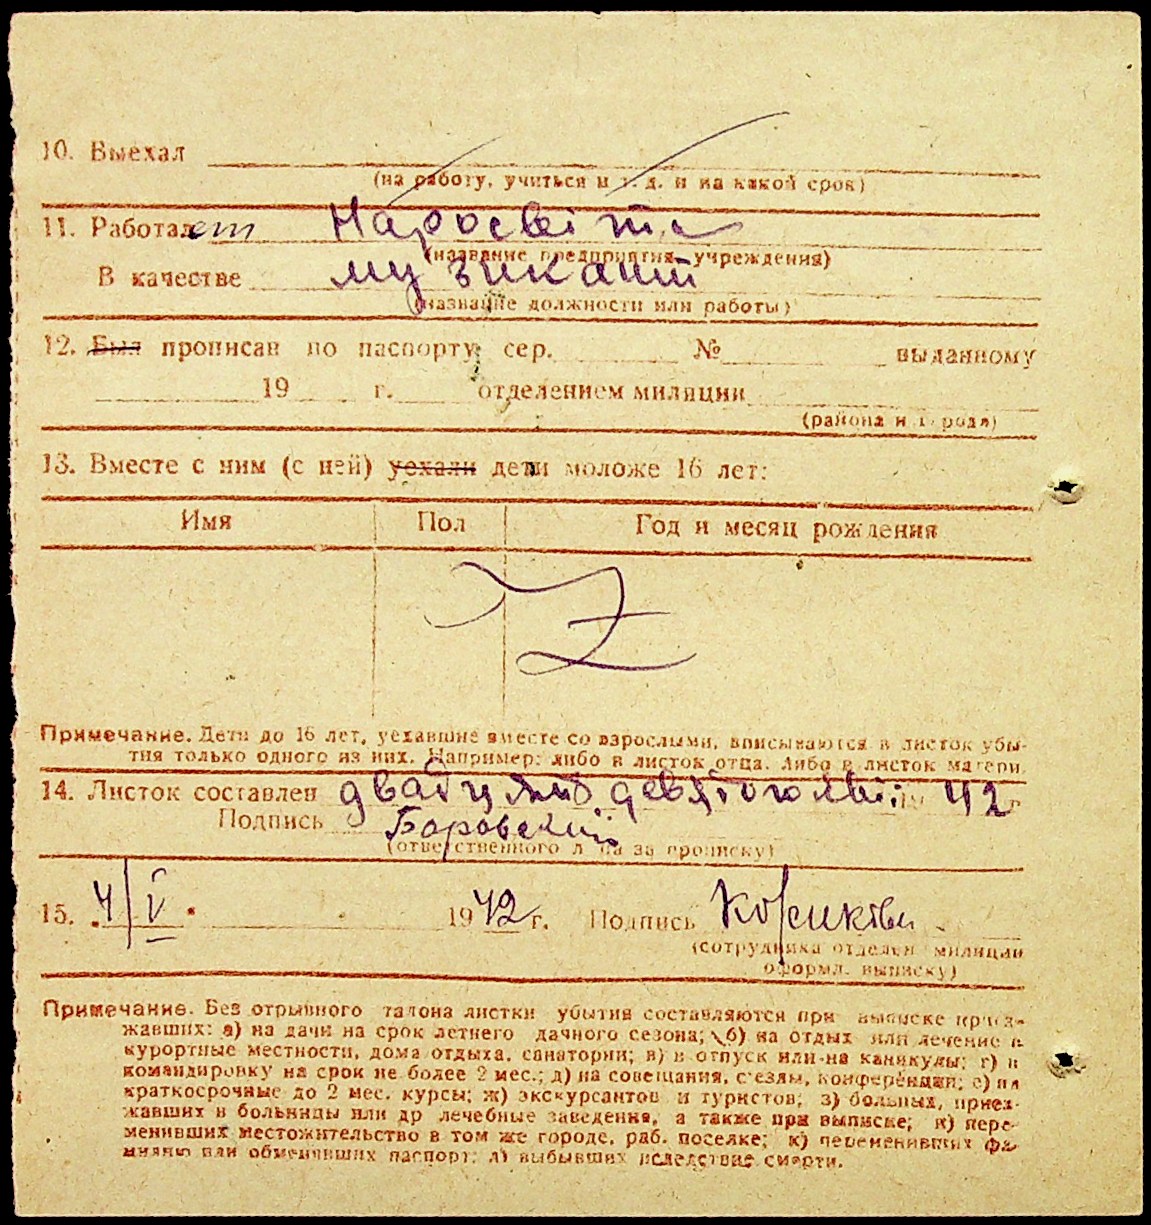 10. Выехал
(на работу, учиться и т. д. и на какой срок)
11. Работает Наросвіта
(название предприятия, учреждения)
В качестве музикант
(название должности или работы)
12. Был прописан по паспорту сер. № выданному
19 г. отделением милиции
(района и города)
13. Вместе с ним (с ней) уехали дети моложе 16 лет:
Имя Пол Год и месяц рождения
Примечание. Дети до 16 лет, уехавшие вместе со взрослыми, вписываются в листок убы-
тия только одного из них. Например: либо в листок отца. Либо в листок матери.
14. Листок составлен двадцять девятого 42 г
Подпись Боровский
(ответственного лица за прописку)
15. 4/V 1942 г. Подпись
(сотрудника отделен милиции
оформл. выписку)
Примечание. Без отрывного талона листки убытия составляются при выписке приез-
жавших: а) на дачи на срок летнего дачного сезона; б) на отдых или лечение в
курортные местности, дома отдыха, санатории; в) в отпуск или на каникулы; г) в
командировку на срок не более 2 мес.; д) на совещания, с'езды, конференции; е) на
краткосрочные до 2 мес. курсы; ж) экскурсантов и туристов; з) больных, приез-
жавших в больницы или др лечебные заведения, а также при выписке; и) пере-
менивших местожительство в том же городе, раб. поселке; к) переменивших фа-
милию или обменивших паспорт; л) выбывших вследствие смерти.